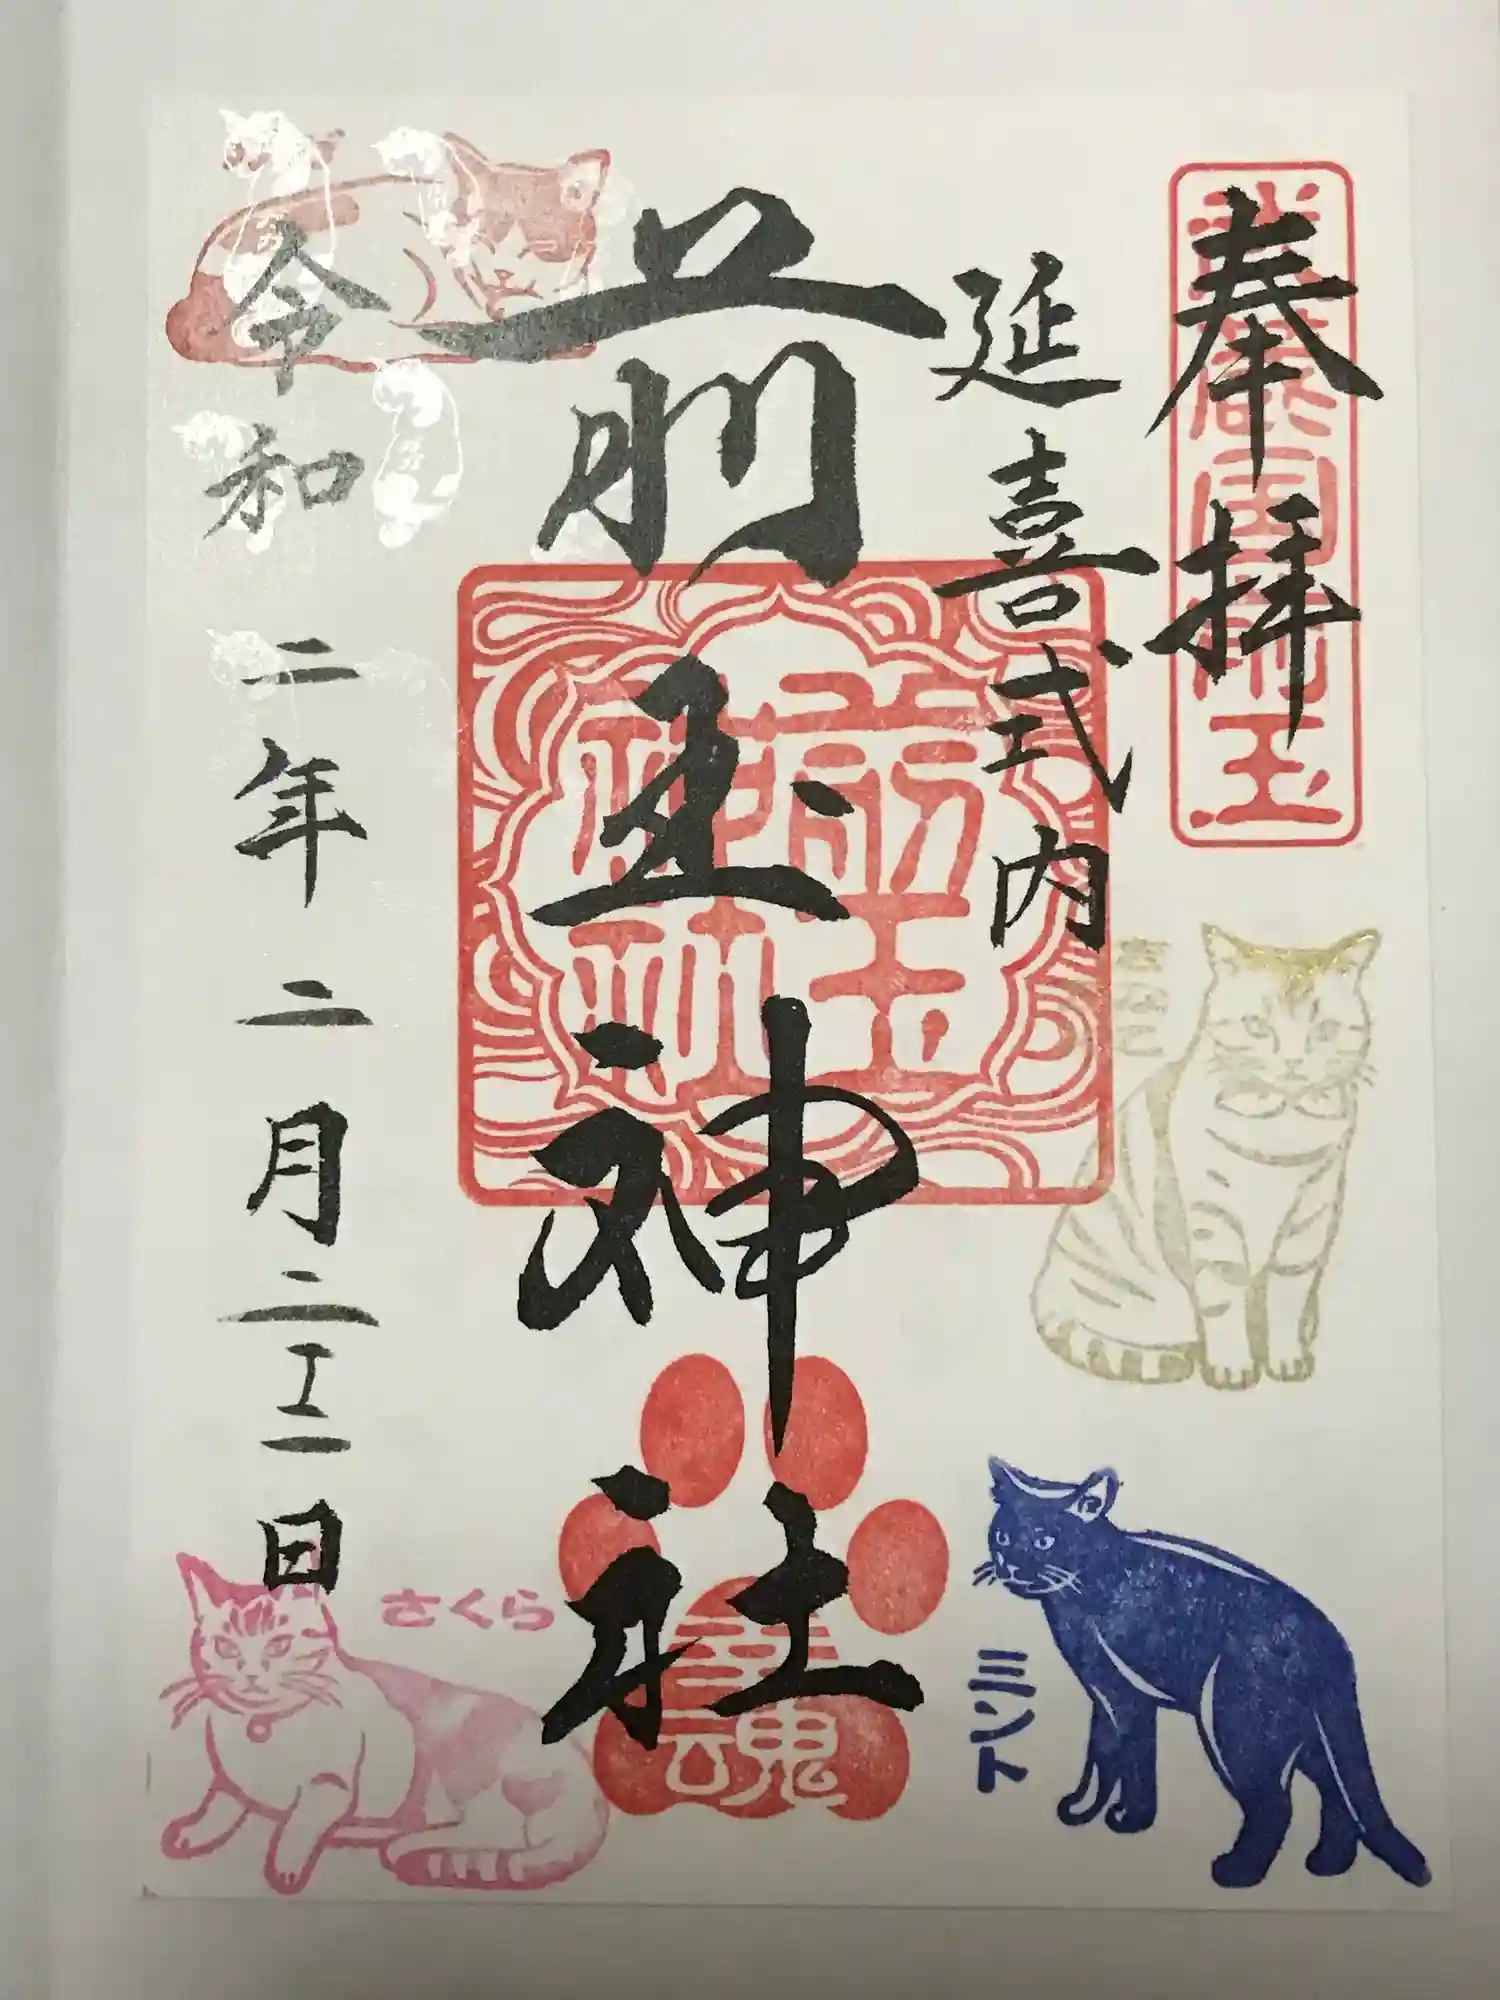 奉拝
武蔵国前玉
延喜式内
前玉神社
前玉
神社
令和二年二月二十二日
きなこ
ミント
さくら
幸魂